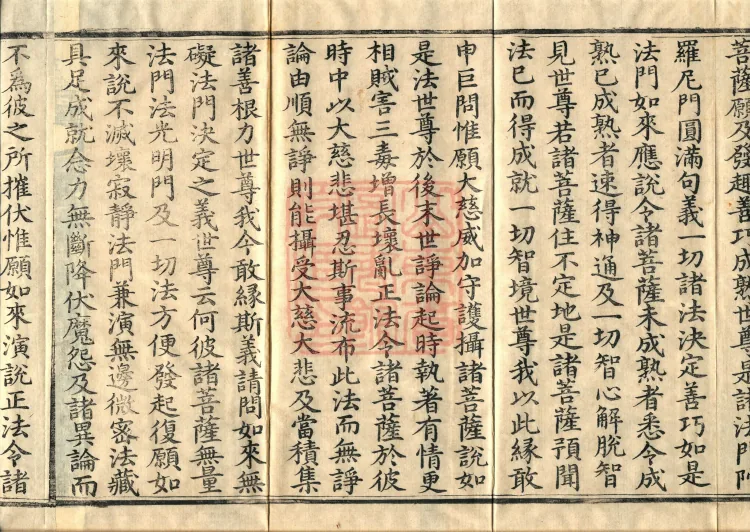 菩薩願及發趣善巧成熟世尊是諸法門陀
羅尼門圓滿句義一切諸法決定善巧如是
法門如來應說令諸菩薩未成熟者悉令成
熟已成熟者速得神通及一切智心解脫智
見世尊若諸菩薩住不定地是諸菩薩預聞
法已而得成就一切智境世尊我以此緣敢
申巨問惟願大慈威加守護攝諸菩薩說如
是法世尊於後末世諍論起時執著有情更
相賊害三毒增長壞亂正法令諸菩薩於彼
時中以大慈悲堪忍斯事流布此法而無諍
論由順無諍則能攝受大慈大悲及當積集
諸善根力世尊我今敢緣斯義請問如來無
礙法門決定之義世尊云何彼諸菩薩無量
法門法光明門及一切法方便發起復願如
來說不滅壞寂靜法門兼演無邊微密法藏
具足成就念力無斷降伏魔怨及諸異論而
不為彼之所摧伏惟願如來演說正法令諸